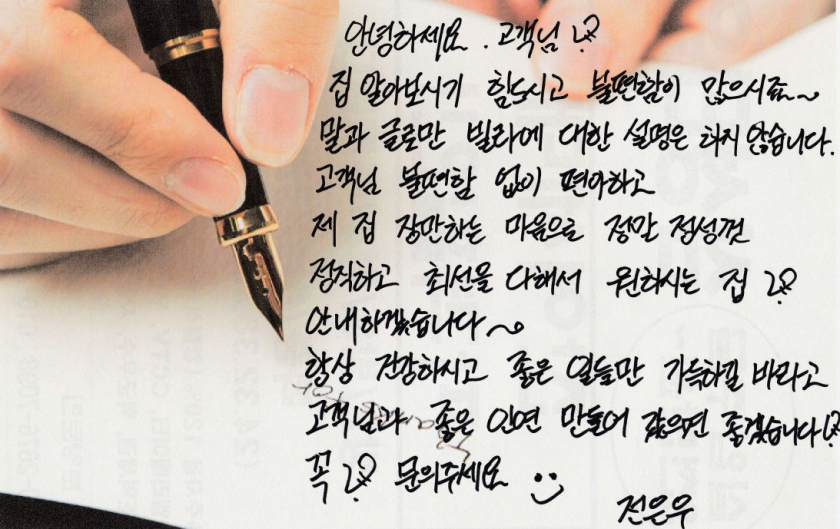 안녕하세요. 고객님!?
집 알아보시기 힘드시고 불편함이 많으시죠~
말과 글로만 빌라에 대한 설명은 하지 않습니다.
고객님 불편함 없이 편아하고
제 집 장만하는 마음으로 정말 정성껏
정직하고 최선을 다해서 원하시는 집!?
안내하겠습니다~
항상 건강하시고 좋은 일들만 가득하길 바라고
고객님과 좋은 인연 만들어 갔으면 좋겠습니다!?
꼭!? 문의주세요
전은우